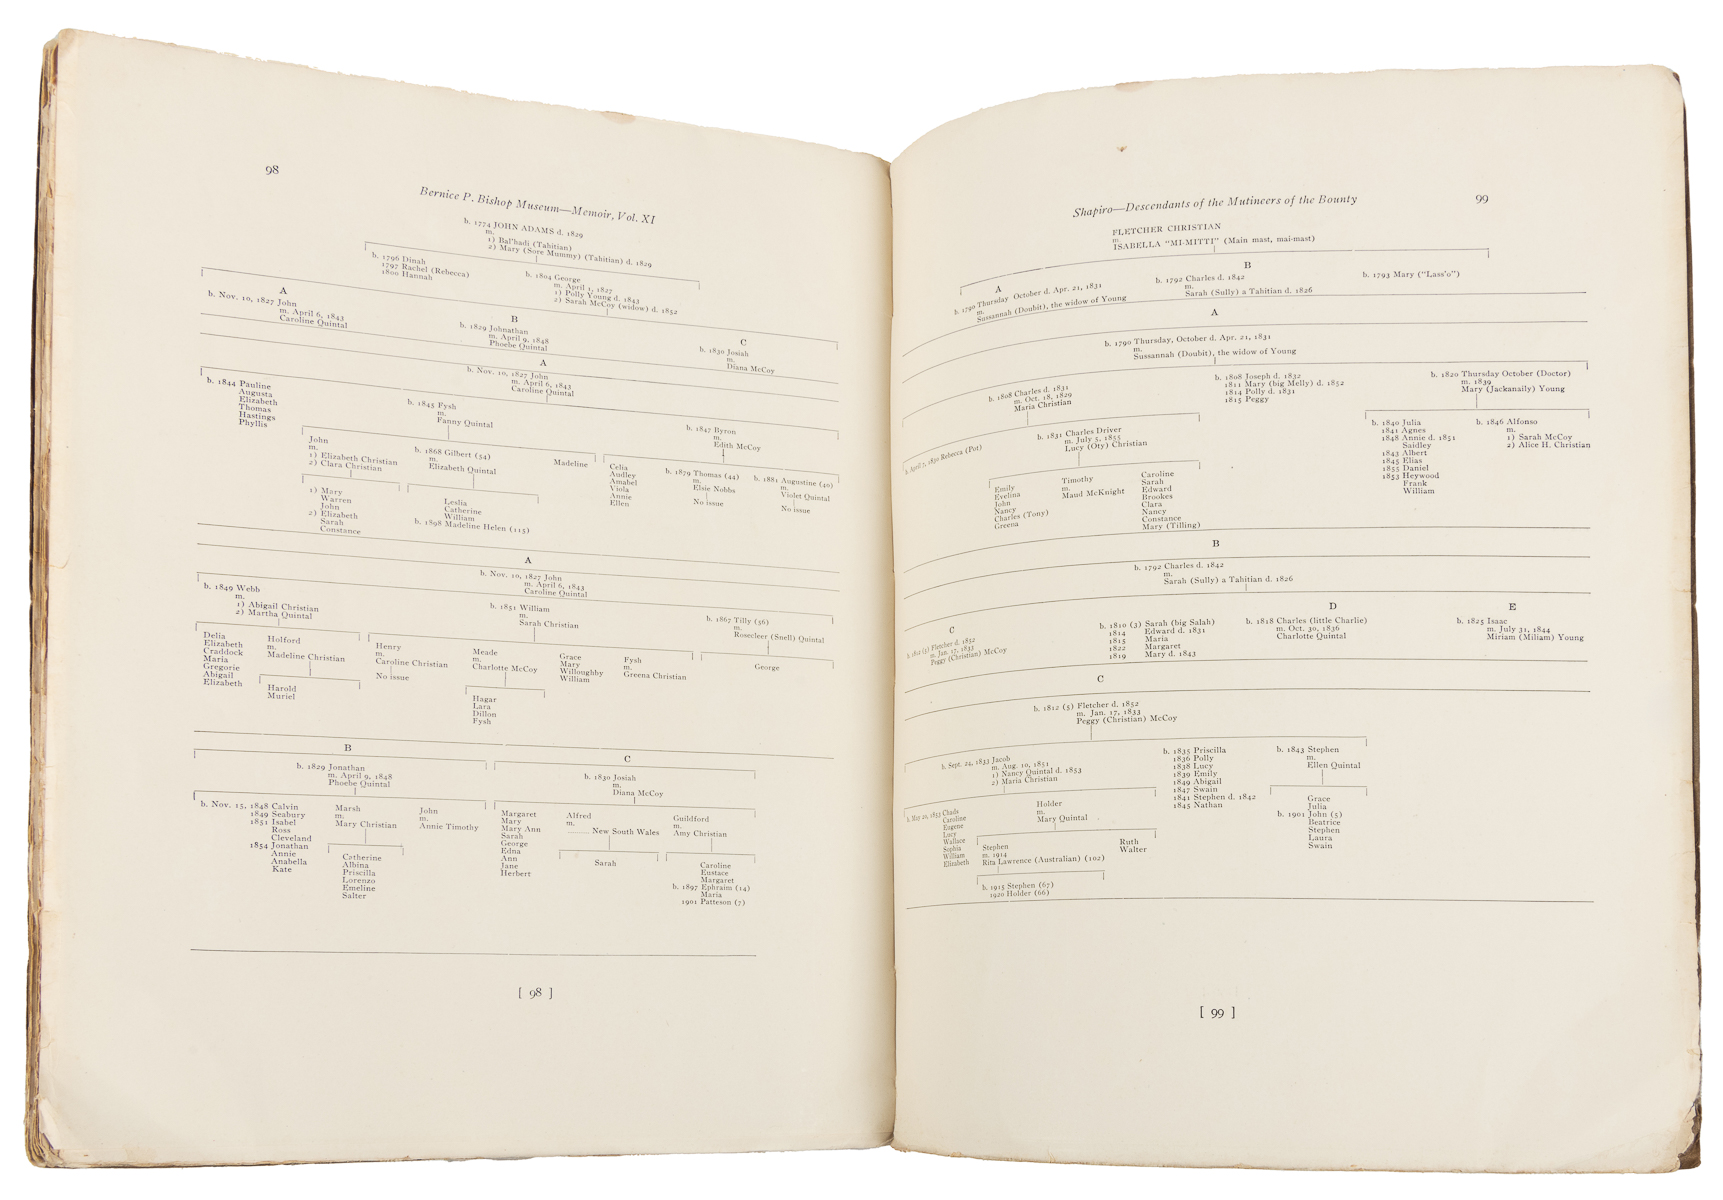 98
Bernice P. Bishop Museum—Memoir, Vol. XI
b. 1774 JOHN ADAMS d. 1829
m.
1) Bal'hadi (Tahitian)
2) Mary (Sore Mummy) (Tahitian) d. 1829
b. 1796 Dinah
1797 Rachel (Rebecca)
1800 Hannah
b. 1804 George
m. April 1, 1827
1) Polly Young d. 1843
2) Sarah McCoy (widow) d. 1852
A
b. Nov. 10, 1827 John
m. April 6, 1843
Caroline Quintal
B
b. 1829 Johnathan
m. April 9, 1848
Phoebe Quintal
C
b. 1830 Josiah
m.
Diana McCoy
A
b. Nov. 10, 1827 John
m. April 6, 1843
Caroline Quintal
b. 1844 Pauline
Augusta
Elizabeth
Thomas
Hastings
Phyllis
b. 1845 Fysh
m.
Fanny Quintal
b. 1847 Byron
m.
Edith McCoy
John
m.
1) Elizabeth Christian
2) Clara Christian
b. 1868 Gilbert (54)
m.
Elizabeth Quintal
Madeline
Celia
Audley
Amabel
Viola
Annie
Ellen
b. 1879 Thomas (44)
m.
Elsie Nobbs
No issue
b. 1881 Augustine (40)
m.
Violet Quintal
No issue
1) Mary
Warren
John
2) Elizabeth
Sarah
Constance
Leslia
Catherine
William
b. 1898 Madeline Helen (115)
A
b. Nov. 10, 1827 John
m. April 6, 1843
Caroline Quintal
b. 1849 Webb
m.
1) Abigail Christian
2) Martha Quintal
b. 1851 William
m.
Sarah Christian
b. 1867 Tilly (56)
m.
Rosecleer (Snell) Quintal
Delia
Elizabeth
Craddock
Maria
Gregorie
Abigail
Elizabeth
Holford
m.
Madeline Christian
Harold
Muriel
Henry
m.
Caroline Christian
No issue
Meade
m.
Charlotte McCoy
Hagar
Lara
Dillon
Fysh
Grace
Mary
Willoughby
William
Fysh
m.
Greena Christian
George
B
b. 1829 Jonathan
m. April 9, 1848
Phoebe Quintal
C
b. 1830 Josiah
m.
Diana McCoy
b. Nov. 15, 1848 Calvin
1849 Seabury
1851 Isabel
Ross
Cleveland
1854 Jonathan
Annie
Anabella
Kate
Marsh
m.
Mary Christian
Catherine
Albina
Priscilla
Lorenzo
Emeline
Salter
John
m.
Annie Timothy
Margaret
Mary
Mary Ann
Sarah
George
Edna
Ann
Jane
Herbert
Alfred
m.
.......... New South Wales
Sarah
Guildford
m.
Amy Christian
Caroline
Eustace
Margaret
b. 1897 Ephraim (14)
Maria
1901 Patteson (7)
[ 98 ]
Shapiro—Descendants of the Mutineers of the Bounty
99
FLETCHER CHRISTIAN
m.
ISABELLA "MI-MITTI" (Main mast, mai-mast)
A
b. 1790 Thursday October d. Apr. 21, 1831
m.
Sussannah (Doubit), the widow of Young
B
b. 1792 Charles d. 1842
m.
Sarah (Sully) a Tahitian d. 1826
b. 1793 Mary ("Lass'o")
A
b. 1790 Thursday, October d. Apr. 21, 1831
m.
Sussannah (Doubit), the widow of Young
b. 1808 Charles d. 1831
m. Oct. 18, 1829
Maria Christian
b. 1808 Joseph d. 1832
1811 Mary (big Melly) d. 1852
1814 Polly d. 1831
1815 Peggy
b. 1820 Thursday October (Doctor)
m. 1839
Mary (Jackanaily) Young
b. April 7, 1830 Rebecca (Pot)
b. 1831 Charles Driver
m. July 5, 1855
Lucy (Oty) Christian
b. 1840 Julia
1841 Agnes
1848 Annie d. 1851
Saidley
1843 Albert
1845 Elias
1855 Daniel
1853 Heywood
Frank
William
b. 1846 Alfonso
m.
1) Sarah McCoy
2) Alice H. Christian
Emily
Evelina
John
Nancy
Charles (Tony)
Greena
Timothy
m.
Maud McKnight
Caroline
Sarah
Edward
Brookes
Clara
Nancy
Constance
Mary (Tilling)
B
b. 1792 Charles d. 1842
m.
Sarah (Sully) a Tahitian d. 1826
C
b. 1812 (5) Fletcher d. 1852
m. Jan. 17, 1833
Peggy (Christian) McCoy
b. 1810 (3) Sarah (big Salah)
1814 Edward d. 1831
1815 Maria
1822 Margaret
1819 Mary d. 1843
D
b. 1818 Charles (little Charlie)
m. Oct. 30, 1836
Charlotte Quintal
E
b. 1825 Isaac
m. July 31, 1844
Miriam (Miliam) Young
C
b. 1812 (5) Fletcher d. 1852
m. Jan. 17, 1833
Peggy (Christian) McCoy
b. Sept. 24, 1833 Jacob
m. Aug. 10, 1851
1) Nancy Quintal d. 1853
2) Maria Christian
b. 1835 Priscilla
1836 Polly
1838 Lucy
1839 Emily
1849 Abigail
1847 Swain
1841 Stephen d. 1842
1845 Nathan
b. 1843 Stephen
m.
Ellen Quintal
b. May 20, 1852 Chuds
Caroline
Eugene
Lucy
Wallace
Sophia
William
Elizabeth
Holder
m.
Mary Quintal
Stephen
m. 1914
Rita Lawrence (Australian) (102)
Ruth
Walter
b. 1915 Stephen (67)
1920 Holder (66)
Grace
Julia
b. 1901 John (5)
Beatrice
Stephen
Laura
Swain
[ 99 ]